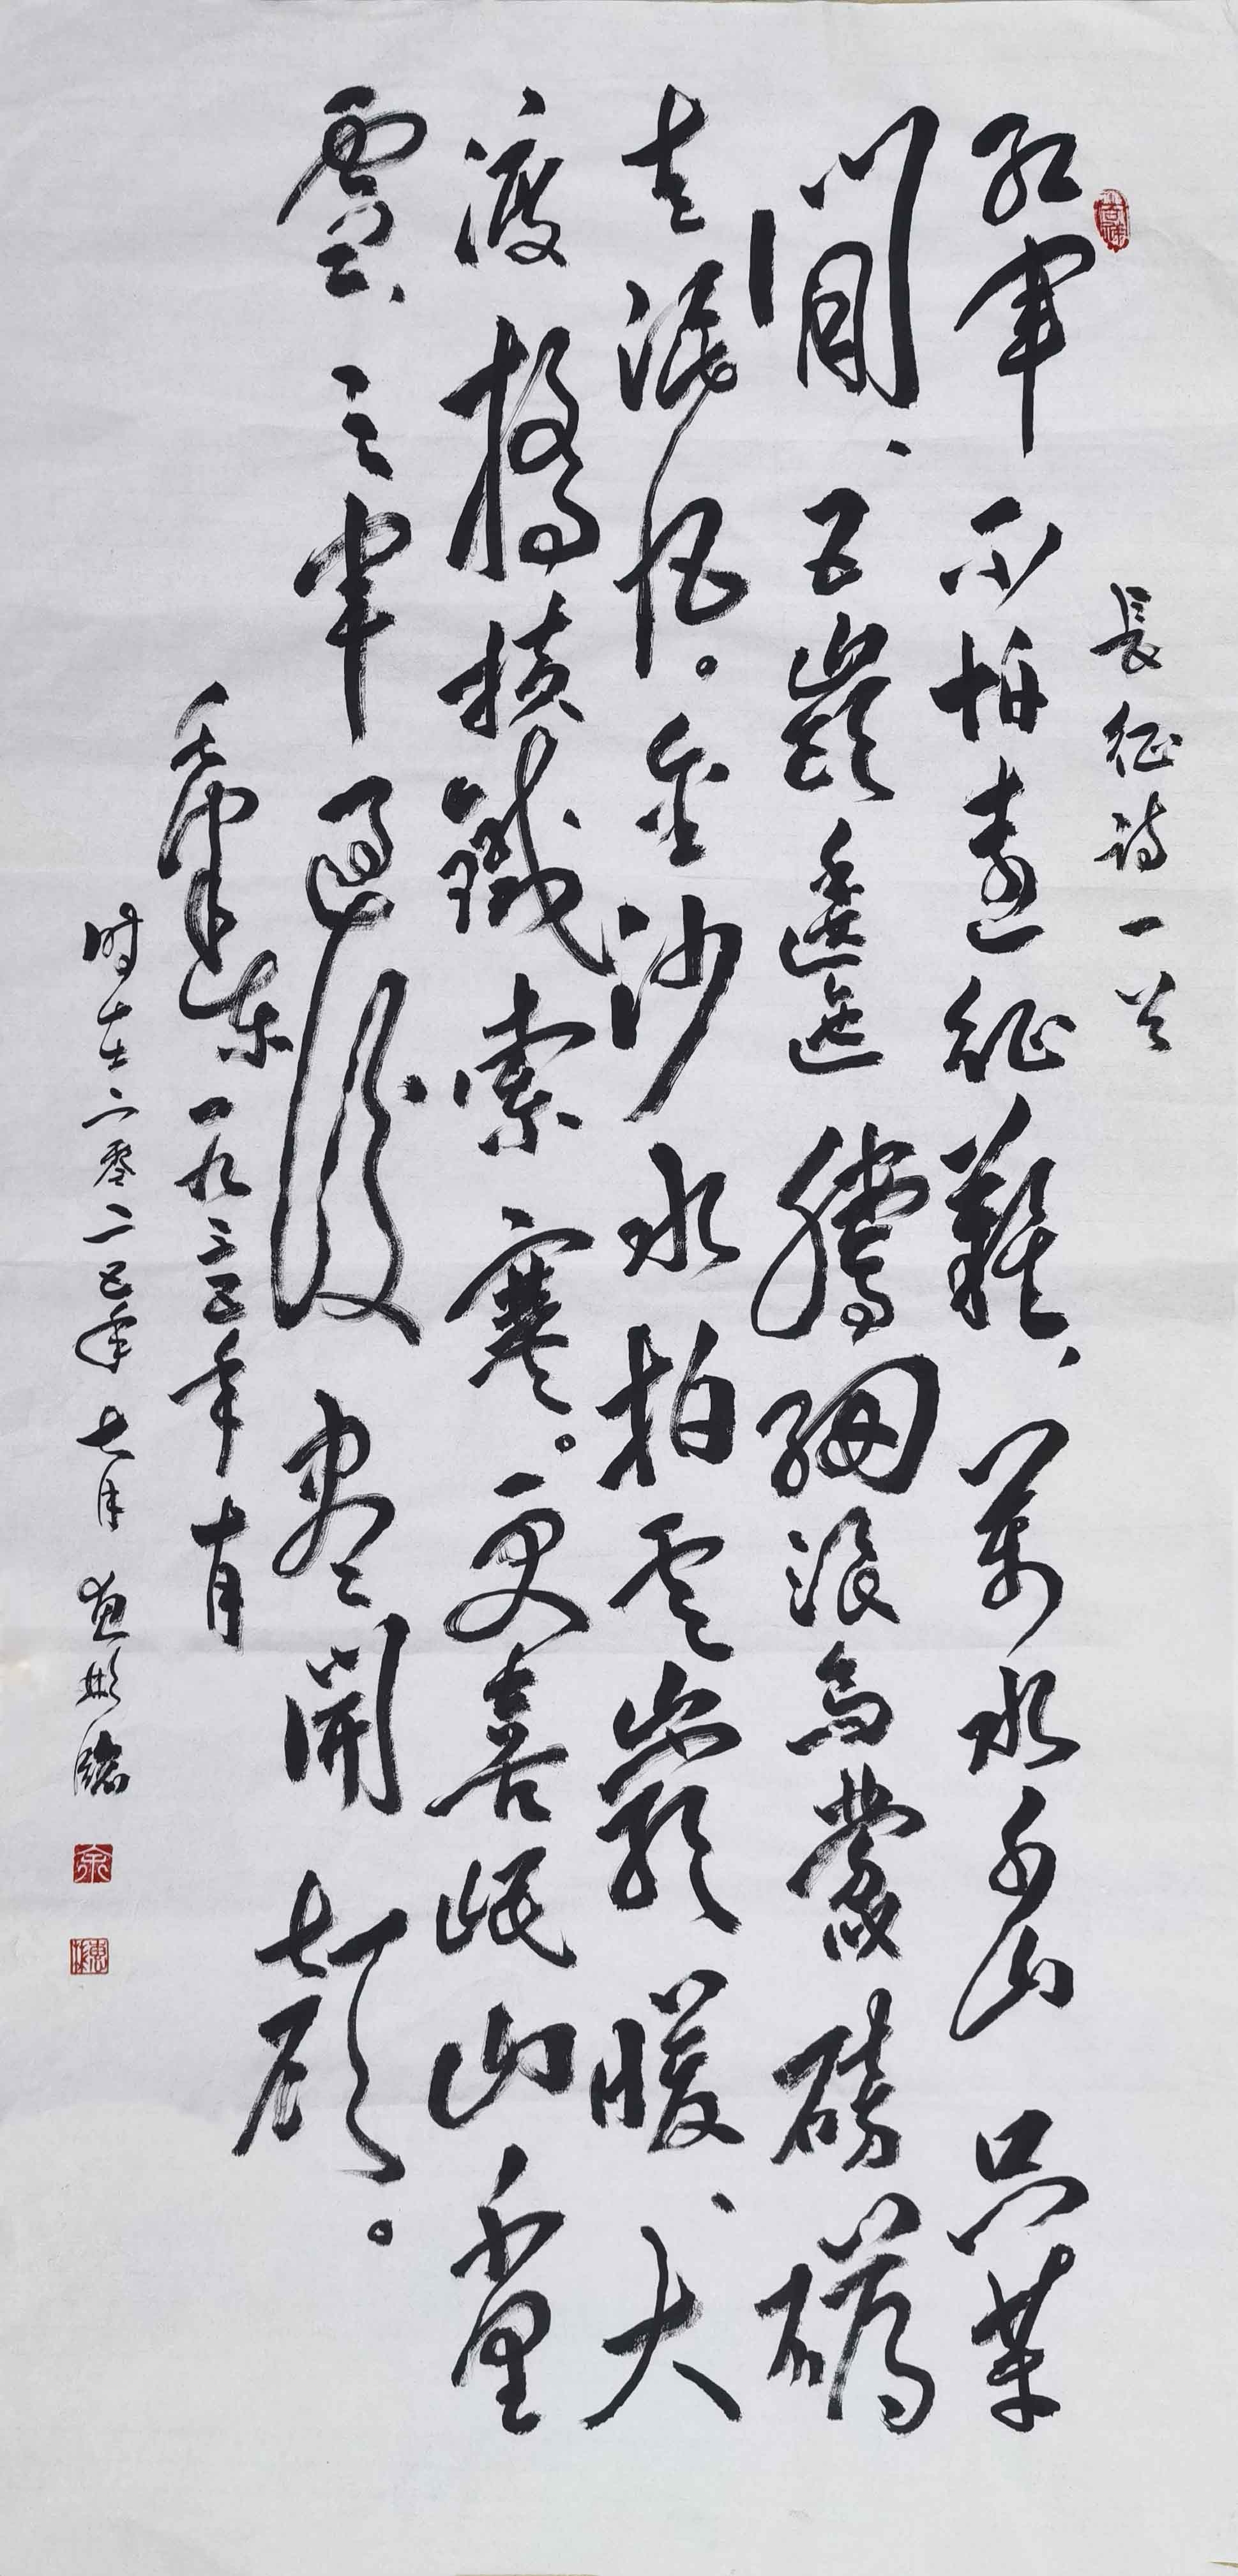 吉祥
長征诗一首
红軍不怕遠征難、萬水千山只等
閒、五嶺逶迤騰細浪烏蒙磅礴
走泥丸。金沙水拍雲巖暖、大
渡橋横鐵索寒。更喜岷山千里
雪、三軍過後盡開顏。
毛泽東 一九三五年十月
时在二零二五年七月 惠彬臨
余